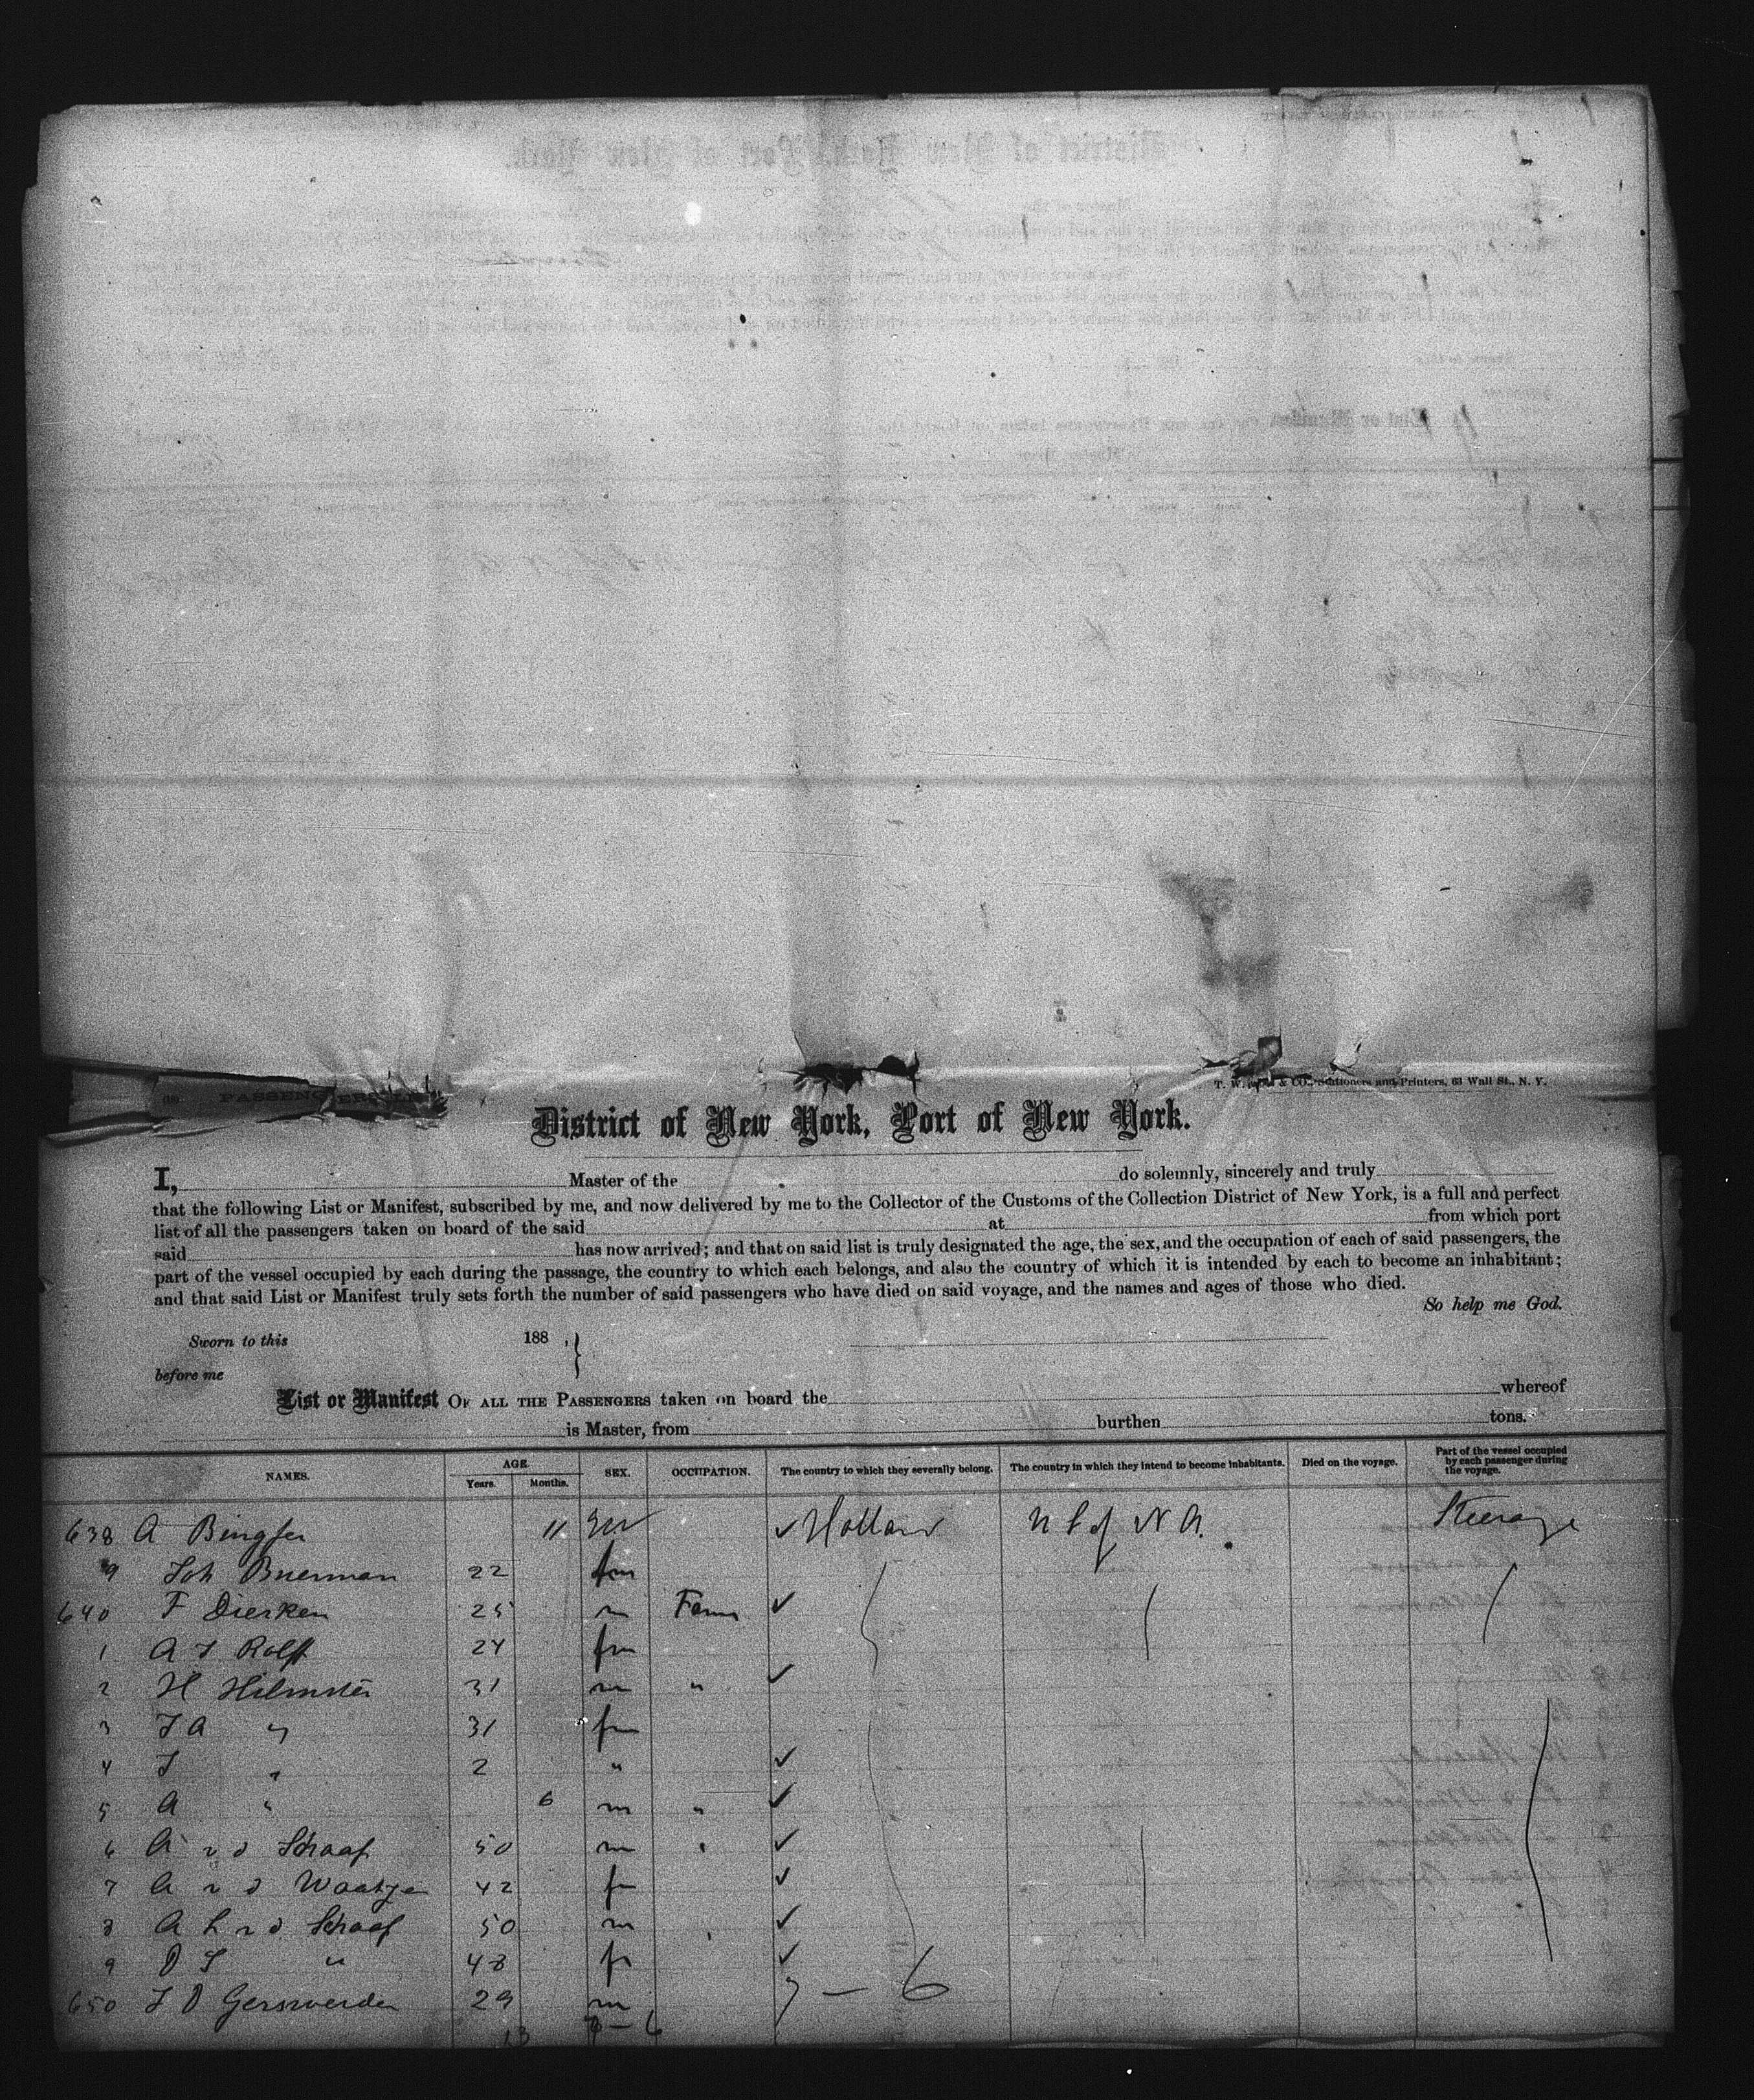 T. W. & CO., Stationers and Printers, 63 Wall St., N. Y.
PASSENGERS
District of New York, Port of New York.
I, Master of the do solemnly, sincerely and truly
that the following List or Manifest, subscribed by me, and now delivered by me to the Collector of the Customs of the Collection District of New York, is a full and perfect
list of all the passengers taken on board of the said at from which port
said has now arrived; and that on said list is truly designated the age, the sex, and the occupation of each of said passengers, the
part of the vessel occupied by each during the passage, the country to which each belongs, and also the country of which it is intended by each to become an inhabitant;
and that said List or Manifest truly sets forth the number of said passengers who have died on said voyage, and the names and ages of those who died.
So help me God.
Sworn to this 188 ,
before me
List or Manifest OF ALL THE PASSENGERS taken on board the whereof
is Master, from burthen tons.
NAMES. AGE. Years. Months. SEX. OCCUPATION. The country to which they severally belong. The country in which they intend to become inhabitants. Died on the voyage. Part of the vessel occupied by each passenger during the voyage.
638 A 11 ✓ Holland N A. Steerage
9 Joh Buerman 22 fm
640 F Dierken 25 m Farm ✓
1 A J Rolft 24 fm
2 H 31 m " ✓
3 J A " 31 fm
4 J " 2 " ✓
5 A " 6 m " ✓
6 A v d Schaaf 50 m " ✓
7 A v d 42 f ✓
8 A h v d Schaaf 50 m ✓
9 D J " 48 f ✓
650 J D 29 m 7 – 6
13 7 – 6